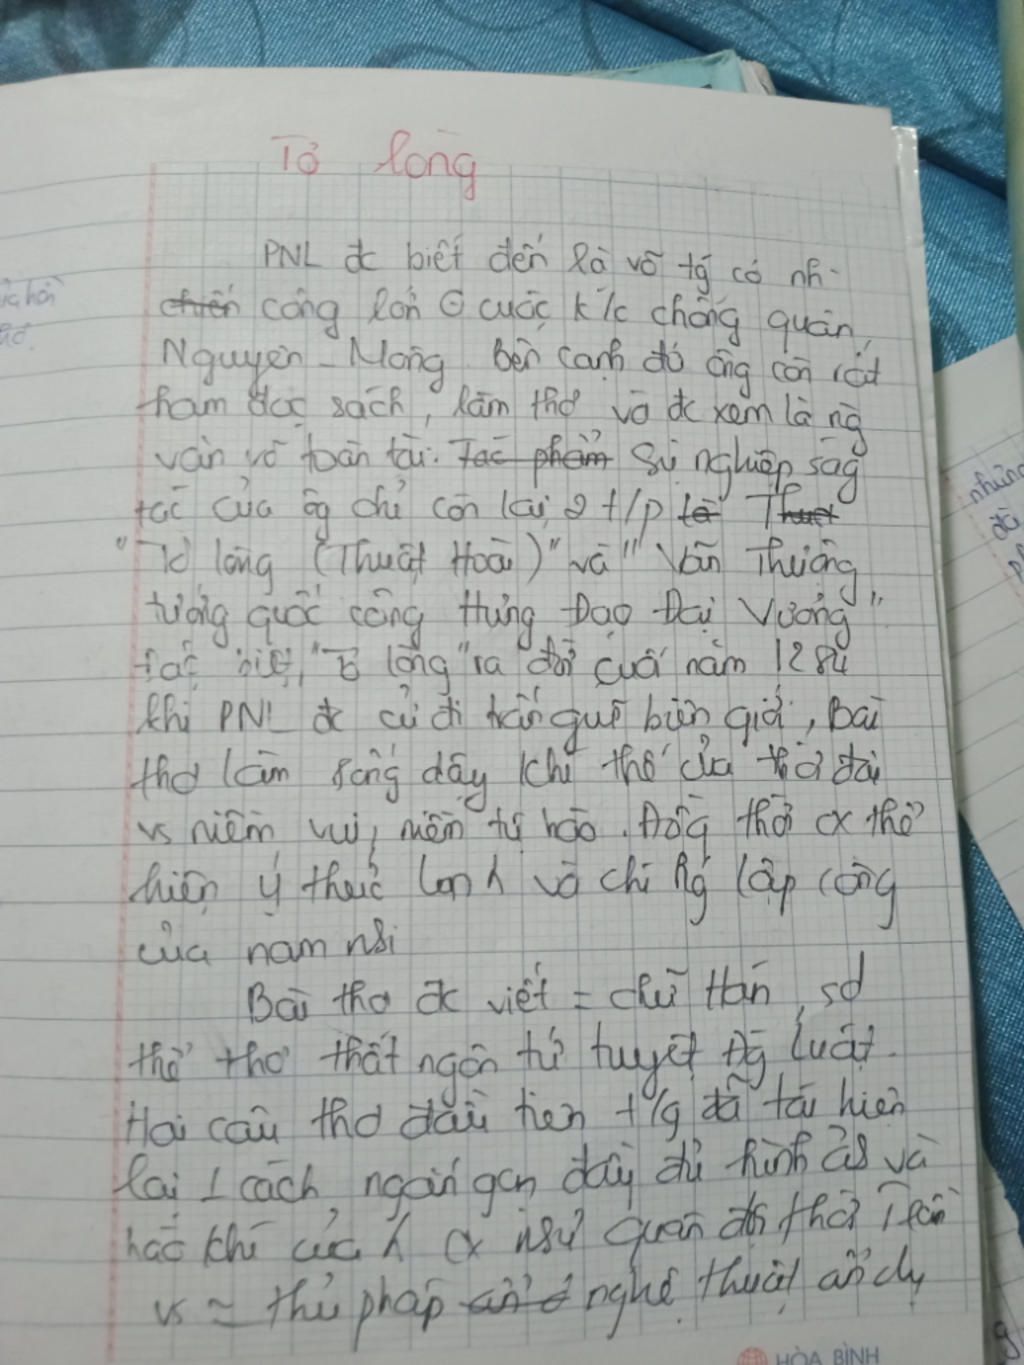 Tỏ lòng
PNL đc biết đến là võ tg có nh
công lớn cuộc k/c chống quân
Nguyên - Mông. Bên cạnh đó ông còn rất
ham đọc sách, làm thơ và đc xem là ng
văn võ toàn tài. Tác phẩm Sự nghiệpság
tác của ôg chỉ còn lại 2 t/p Thuật
"Tỏ lòng (Thuật Hoài)" và "Vãn Thượng
tướng quốc công Hưng Đạo Đại Vương"
Đặc biệt, "Tỏ lòng" ra đời cuối năm 1284
khi PNL đc cử đi trấn giữ biên giới, Bài
thơ làm sống dậy khí thế của thời đại
vs niềm vui, niềm tự hào. Đồng thời cx thể
hiện ý thức và chí lập công
của nam nhi
Bài thơ đc viết = chữ Hán, sd
thể thơ thất ngôn tứ tuyệt Đg luật.
Hai câu thơ đầu tiên t/g đã tái hiện
lại 1 cách ngắn gọn đầy đủ hình ảh và
hào khí của cx như quân đội thời Trần
vs thủ pháp nghệ thuật ẩn dụ
HÒA BÌNH